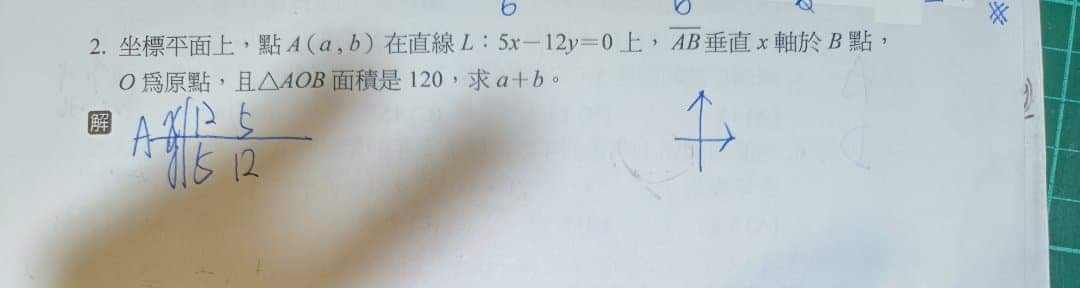 2. 坐標平面上，點 A(a,b) 在直線 L：5x－12y=0 上，AB 垂直 x 軸於 B 點，
O 為原點，且△AOB 面積是 120，求 a+b。
解
A x 12 5
y 5 12